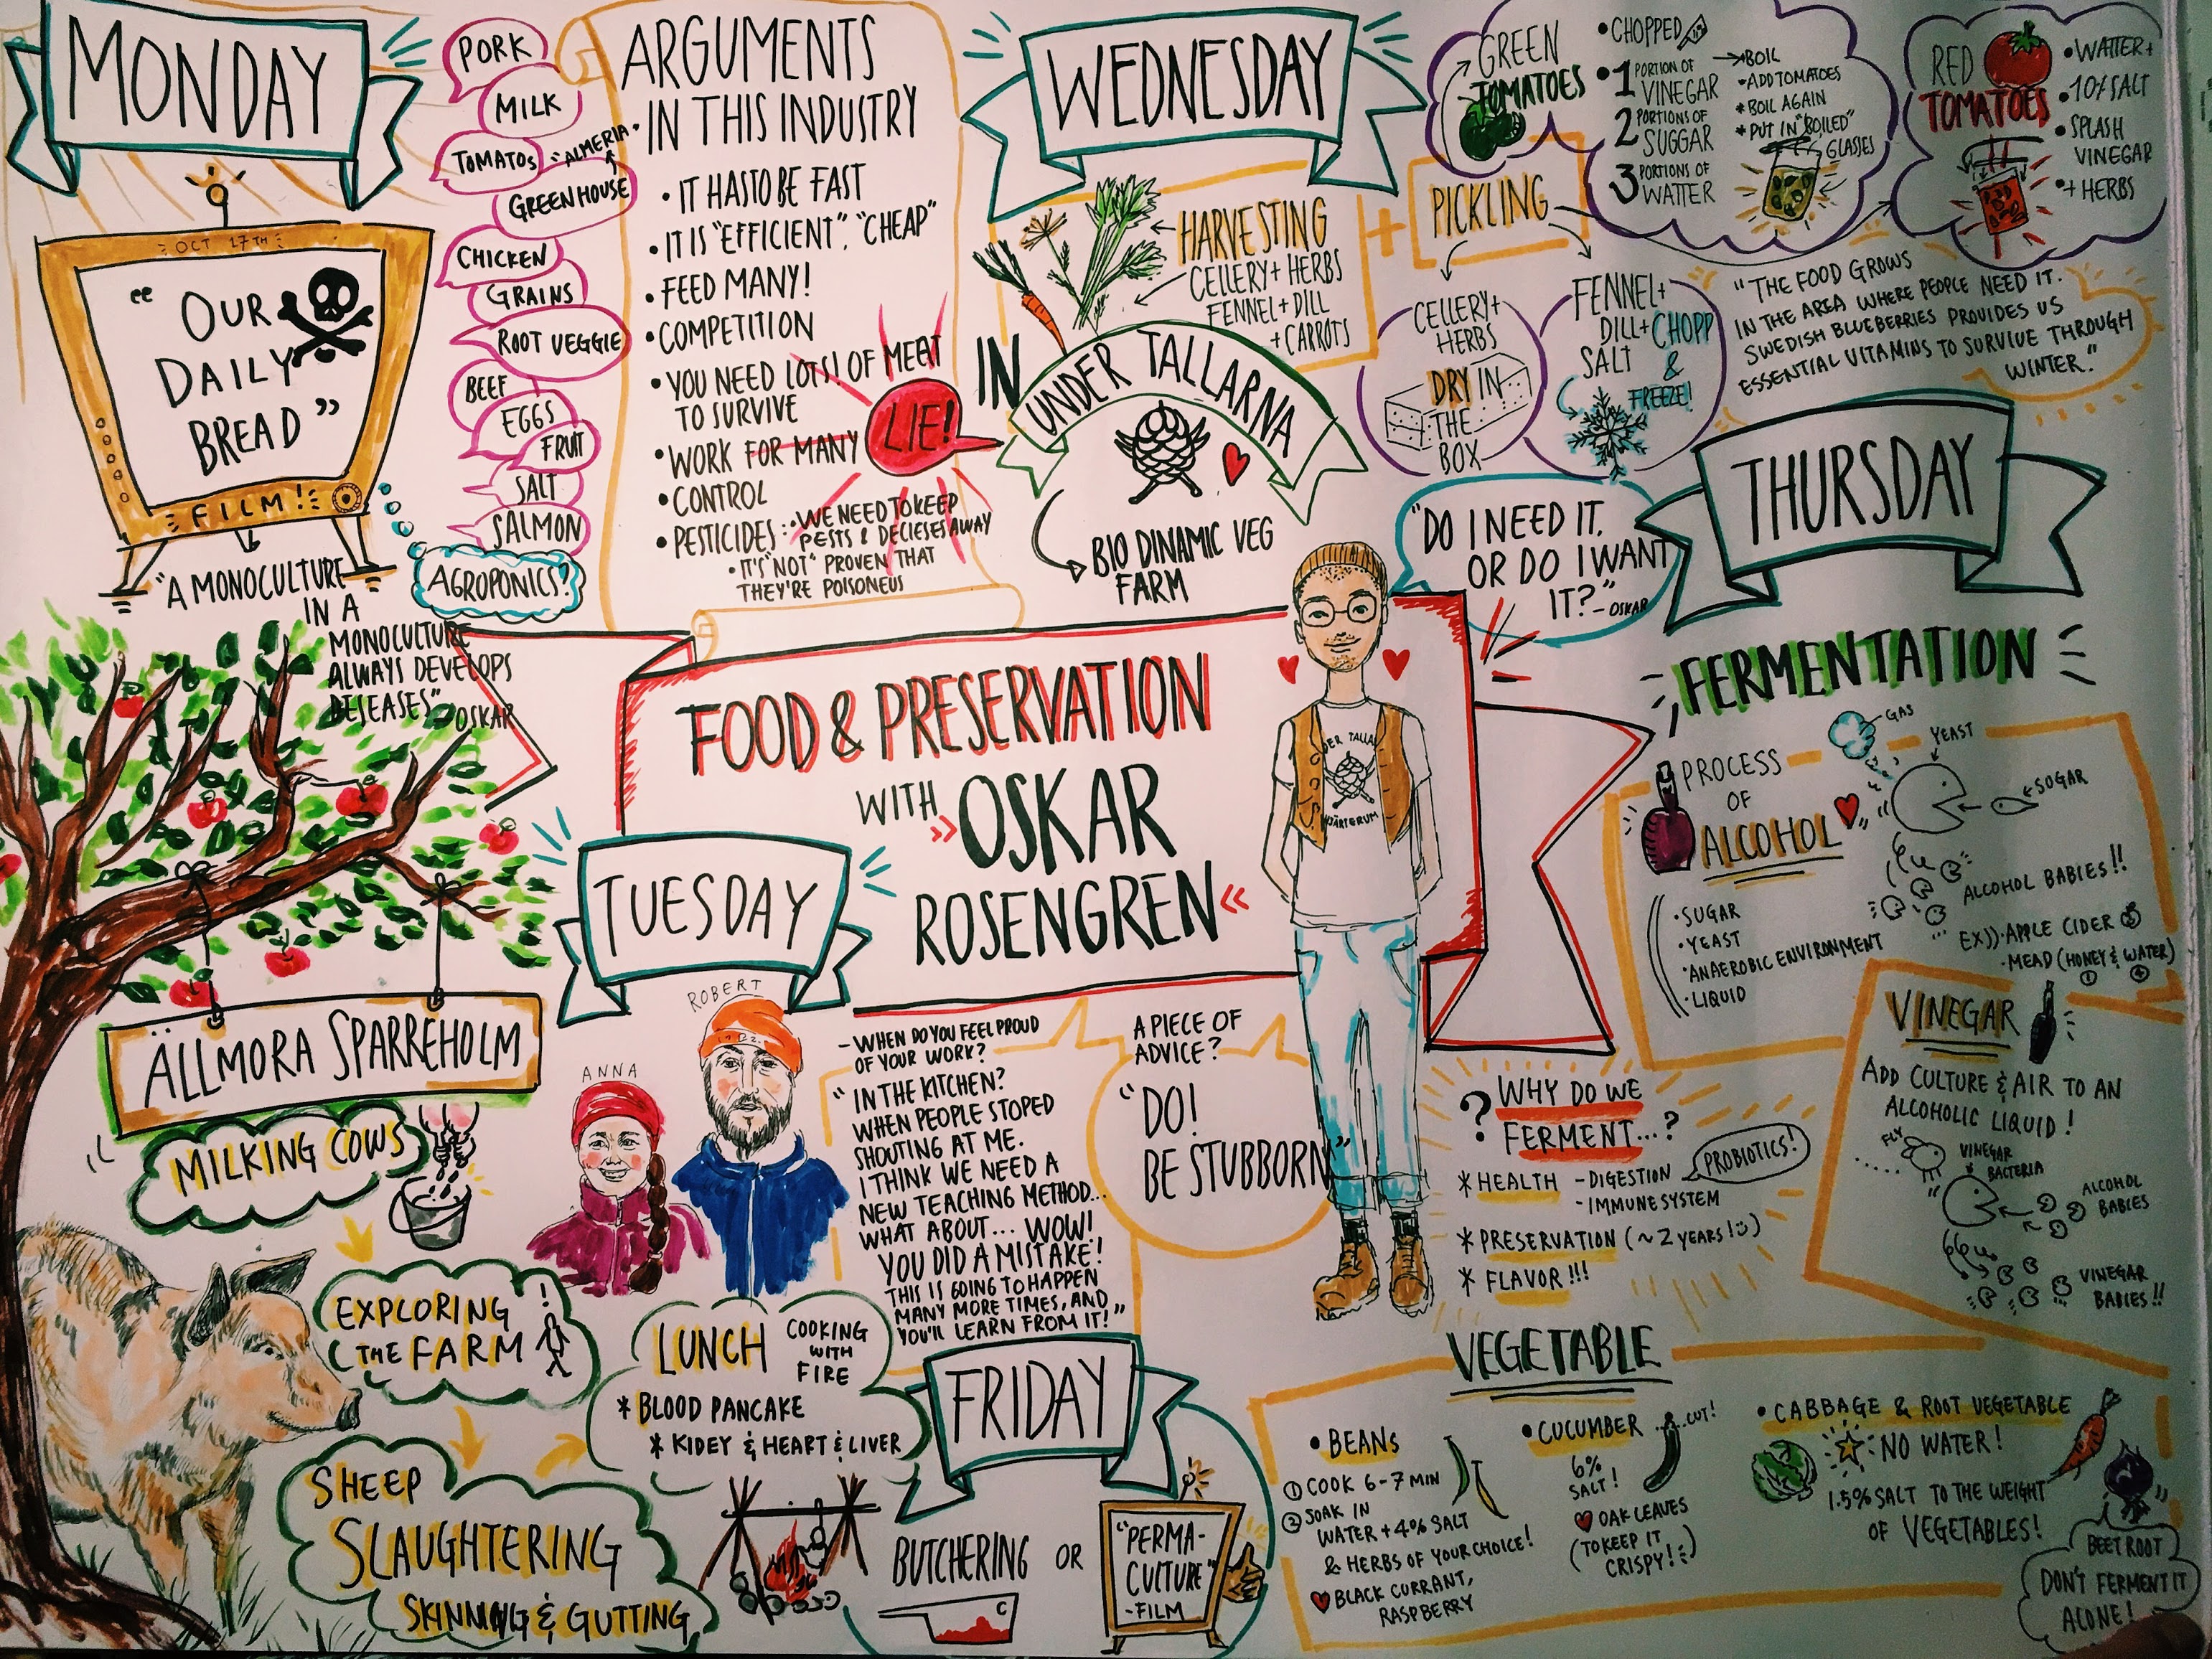 MONDAY
OCT 17TH
"OUR
DAILY
BREAD"
FILM!
"A MONOCULTURE
IN A
MONOCULTURE
ALWAYS DEVELOPS
DESEASES"
-OSKAR
PORK
MILK
TOMATOS
"ALMERIA"
GREENHOUSE
CHICKEN
GRAINS
ROOT VEGGIE
BEEF
EGGS
FRUIT
SALT
SALMON
AGROPONICS?
ARGUMENTS
IN THIS INDUSTRY
• IT HAS TO BE FAST
• IT IS "EFFICIENT", "CHEAP"
• FEED MANY!
• COMPETITION
• YOU NEED LOTS! OF MEAT
TO SURVIVE
• WORK FOR MANY
• CONTROL
• PESTICIDES: • WE NEED TO KEEP
PESTS & DECIESES AWAY
• IT'S "NOT" PROVEN THAT
THEY'RE POISONEUS
LIE!
WEDNESDAY
HARVESTING
CELLERY + HERBS
FENNEL + DILL
+ CARROTS
+
PICKLING
IN
UNDER TALLARNA
BIO DINAMIC VEG
FARM
GREEN
TOMATOES
• CHOPPED
• 1 PORTION OF
VINEGAR
2 PORTIONS OF
SUGGAR
3 PORTIONS OF
WATTER
→ BOIL
* ADD TOMATOES
* BOIL AGAIN
* PUT IN "BOILED"
GLASSES
RED
TOMATOES
• WATTER +
• 10% SALT
• SPLASH
VINEGAR
• + HERBS
CELLERY +
HERBS
DRY IN
THE
BOX
FENNEL +
DILL + CHOPP
SALT &
FREEZE!
"THE FOOD GROWS
IN THE AREA WHERE PEOPLE NEED IT.
SWEDISH BLUEBERRIES PROVIDES US
ESSENTIAL VITAMINS TO SURVIVE THROUGH
WINTER."
"DO I NEED IT,
OR DO I WANT
IT?"
-OSKAR
FOOD & PRESERVATION
WITH
OSKAR
ROSENGREN
DER TALLA
HJÄRTERUM
TUESDAY
ÄLLMORA SPARREHOLM
MILKING COWS
EXPLORING
THE FARM
!
SHEEP
SLAUGHTERING
SKINNING & GUTTING
ANNA
ROBERT
LUNCH
COOKING
WITH
FIRE
* BLOOD PANCAKE
* KIDEY & HEART & LIVER
- WHEN DO YOU FEEL PROUD
OF YOUR WORK?
"IN THE KITCHEN?
WHEN PEOPLE STOPED
SHOUTING AT ME.
I THINK WE NEED A
NEW TEACHING METHOD...
WHAT ABOUT.... WOW!
YOU DID A MISTAKE!
THIS IS GOING TO HAPPEN
MANY MORE TIMES, AND
YOU'LL LEARN FROM IT!"
A PIECE OF
ADVICE?
"DO!
BE STUBBORN"
THURSDAY
FERMENTATION
PROCESS
OF
ALCOHOL
GAS
YEAST
SOGAR
ALCOHOL BABIES!!
• SUGAR
• YEAST
• ANAEROBIC ENVIRONMENT
• LIQUID
EX)). APPLE CIDER
• MEAD (HONEY & WATER)
VINEGAR
ADD CULTURE & AIR TO AN
ALCOHOLIC LIQUID!
FLY
VINEGAR
BACTERIA
ALCOHOL
BABIES
VINEGAR
BABIES!!
? WHY DO WE
FERMENT...?
* HEALTH - DIGESTION
- IMMUNE SYSTEM
PROBIOTICS!
* PRESERVATION (~2 YEARS!)
* FLAVOR!!!
VEGETABLE
• BEANS
① COOK 6-7 MIN
② SOAK IN
WATER + 4% SALT
& HERBS OF YOUR CHOICE!
BLACK CURRANT,
RASPBERRY
• CUCUMBER ....CUT!
6%
SALT!
OAK LEAVES
(TO KEEP IT
CRISPY!)
• CABBAGE & ROOT VEGETABLE
NO WATER!
1.5% SALT TO THE WEIGHT
OF VEGETABLES!
BEETROOT
DON'T FERMENT IT
ALONE!
FRIDAY
BUTCHERING
OR
"PERMA-
CULTURE"
-FILM